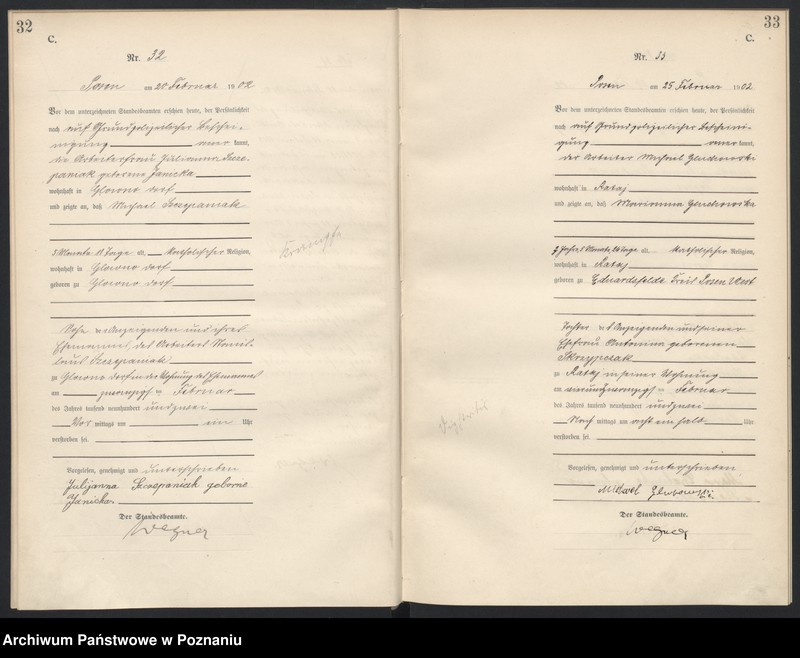 32
C.
Nr. 32
Posen am 20 Februar 1902
Vor dem unterzeichneten Standesbeamten erschien heute, der Persönlichkeit
nach auf Grund polizeilicher Beschei-
nigung aner kannt,
die Arbeiterfrau Julianna Szcze-
paniak geborene Janicka
wohnhaft in Glowno dorf
und zeigte an, daß Michael Szczepaniak
3 Monate 11 Tage alt, katholischer Religion,
wohnhaft in Glowno dorf
geboren zu Glowno dorf
Sohn der Anzeigenden und ihres
Ehemannes, des Arbeiters Stanis-
laus Szczepaniak
zu Glowno dorf in der Wohnung des Ehemannes
am zwanzigsten Februar
des Jahres tausend neunhundert und zwei
Vor mittags um ein Uhr
verstorben sei.
Vorgelesen, genehmigt und unterschrieben
Julijanna Szczepaniak geborne
Janicka
Der Standesbeamte.
Wegner
33
C.
Nr. 33
Posen am 25 Februar 1902
Vor dem unterzeichneten Standesbeamten erschien heute, der Persönlichkeit
nach auf Grund polizeilicher Bescheini-
gung aner kannt,
der Arbeiter Michael Gluchowski
wohnhaft in Rataj
und zeigte an, daß Marianna Gluchowska
2 Jahre, 5 Monate, 26 Tage alt, katholischer Religion,
wohnhaft in Rataj
geboren zu Eduardsfelde Kreis Posen West
Tochter des Anzeigenden und seiner
Ehefrau Antonina geborenen
Skrzypczak
zu Rataj in seiner Wohnung
am vierundzwanzigsten Februar
des Jahres tausend neunhundert und zwei
Nach mittags um acht ein halb Uhr
verstorben sei.
Vorgelesen, genehmigt und unterschrieben
Michael
Der Standesbeamte.
Wegner
Archiwum Państwowe w Poznaniu